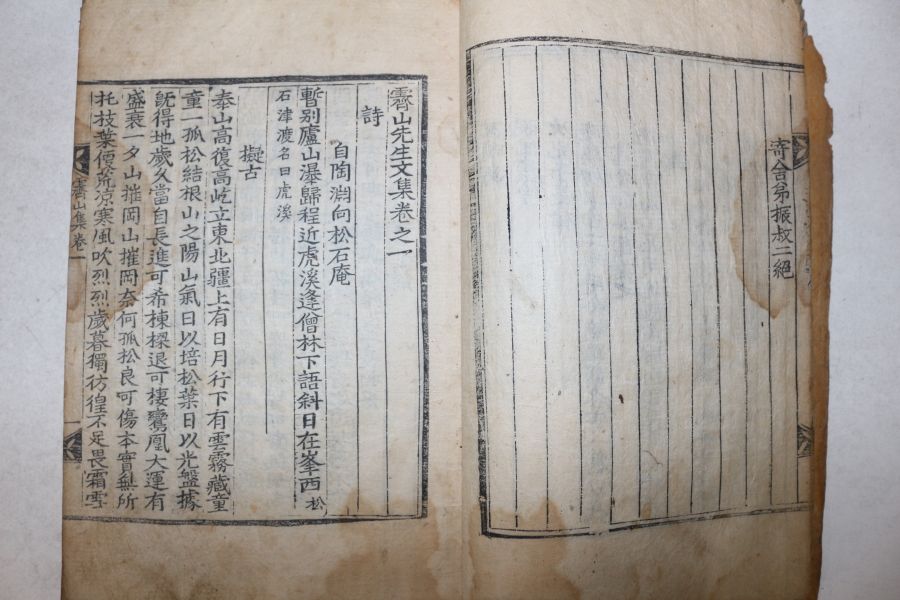 寄舍弟振叔二絕
霽山先生文集卷之一
詩
自陶淵向松石庵
暫別廬山瀑歸程近虎溪逢僧林下語斜日在峯西松
石津渡名曰虎溪
擬古
泰山高復高屹立東北疆上有日月行下有雲霧藏童
童一孤松結根山之陽山氣日以培松葉日以光盤據
旣得地歲久當自長進可希棟樑退可棲鸞凰大運有
盛衰一夕山摧岡山摧岡奈何孤松良可傷本實無所
托枝葉便荒凉寒風吹烈烈歲暮獨彷徨不足畏霜雪
霽山集卷一